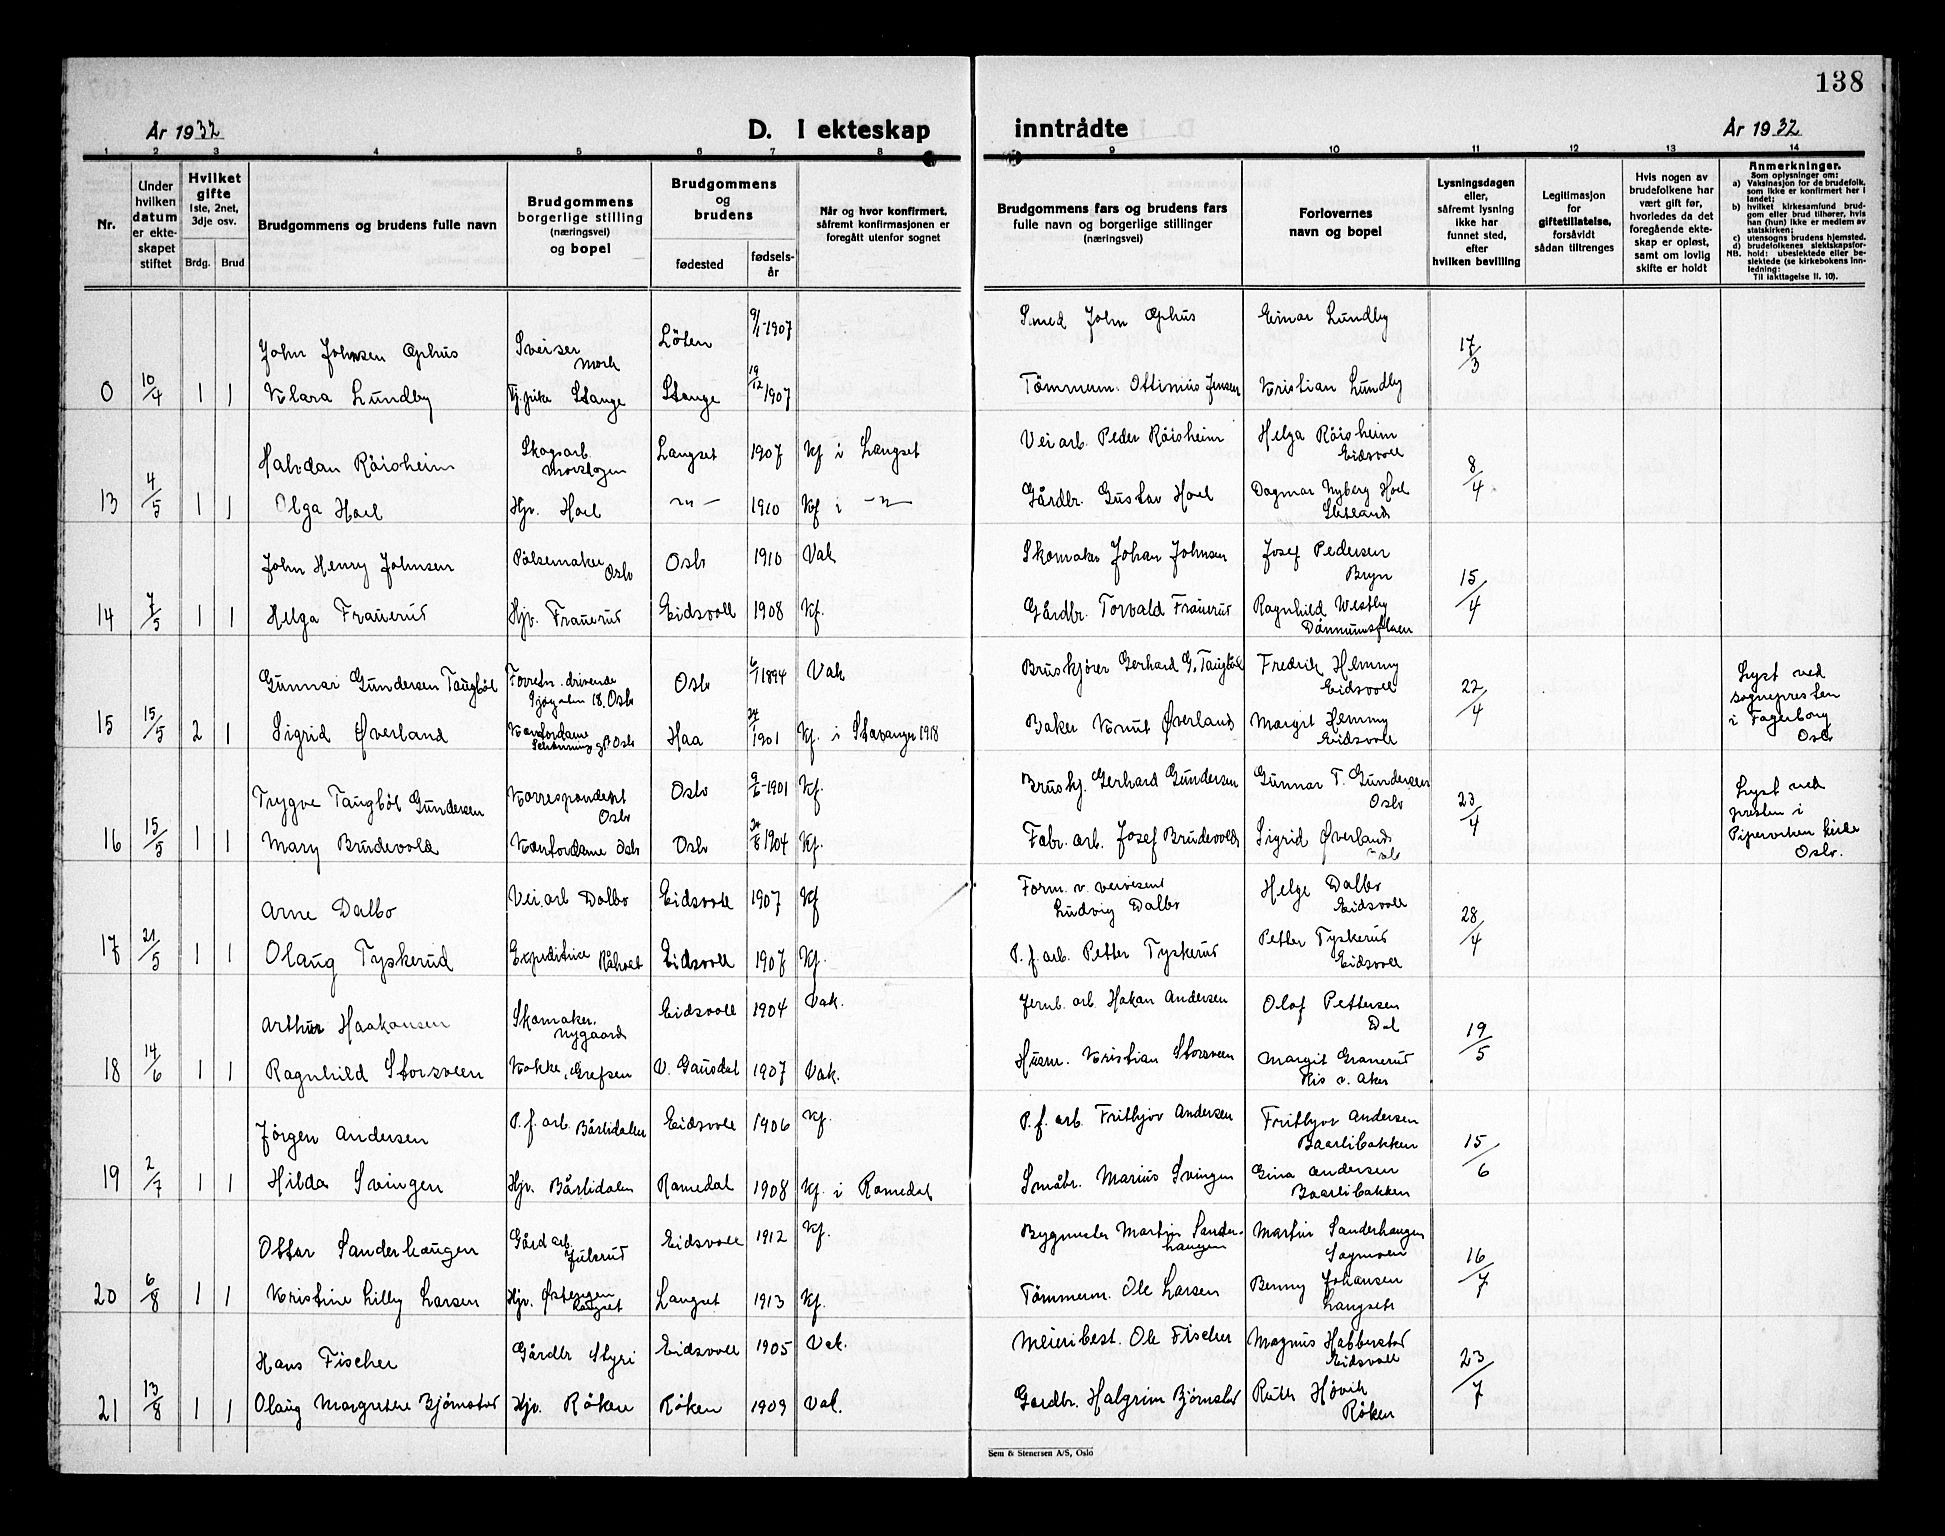 138
År 1932
D. I ekteskap
inntrådte
År 1932
1 2 3 4 5 6 7 8 9 10 11 12 13 14
Nr.
Under hvilken datum er ekte-skapet stiftet
Hvilket gifte
1ste, 2net, 3dje osv.
Brdg. Brud
Brudgommens og brudens fulle navn
Brudgommens
borgerlige stilling
(næringsvei)
og bopel
Brudgommens
og
brudens
fødested
fødsels-år
Når og hvor konfirmert,
såfremt konfirmasjonen er
foregått utenfor sognet
Brudgommens fars og brudens fars
fulle navn og borgerlige stillinger
(næringsvei)
Forlovernes
navn og bopel
Lysningsdagen
eller,
såfremt lysning
ikke har
funnet sted,
efter
hvilken bevilling
Legitimasjon
for
giftetillatelse,
forsåvidt
sådan tiltrenges
Hvis nogen av
brudefolkene har
vært gift før,
hvorledes da det
foregående ekte-
skap er opløst,
samt om lovlig
skifte er holdt
Anmerkninger.
Som oplysninger om:
a) Vaksinasjon for de brudefolk, som ikke er konfirmert her i landet;
b) hvilket kirkesamfund brudgom eller brud tilhører, hvis han (hun) ikke er medlem av statskirken;
c) utensogns brudens hjemsted.
d) brudefolkenes slektskapsforhold: ubeslektede eller beslektede (se kirkebokens innledning:
NB. Til iakttagelse II. 10).
John Johnsen Ophus Sveiser Løten 9/1-1907 Smed John Ophus Einar Lundby
0 10/4 1 1 Klara Lundby Tj.pike Stange Stange 19/12 1907 Tömmerm. Ottinius Jensen Kristian Lundby 17/3
Halvdan Röisheim Skogsarb. Langset 1907 Kf i Langset Vei arb. Peder Röisheim Helga Röisheim Eidsvoll
13 4/5 1 1 Olga Hoel Hjv. Hoel —"— 1910 Kf i —"— Gårdbr. Gustav Hoel Dagmar Nyberg Hoel 8/4
John Henry Johnsen Pølsemaker Oslo Oslo 1910 Vak Skomaker Johan Johnsen Josef Pedersen Bryn
14 7/5 1 1 Helga Frauerud Hjv. Frauerud Eidsvoll 1908 Kf. Gårdbr. Torvald Frauerud Ragnhild Westby 15/4
Gunnar Gundersen Taugbøl Forretn. drivende Gjøgaten 18. Oslo Oslo 6/1 1894 Vak Bruskjører Gerhard G. Taugbøl Fredrik Hemmy Eidsvoll
15 15/5 2 1 Sigrid Øverland Kontordame Haa 24/1 1901 Kf. i Stavanger 1918 Baker Knut Øverland Margit Hemmy Eidsvoll 22/4 Lyst ved sognepresten i Fagerborg Oslo
Trygve Taugbøl Gundersen Korrespondent Oslo Oslo 9/6-1901 Kf. Bruskj. Gerhard Gundersen Gunnar T. Gundersen Oslo
16 15/5 1 1 Mary Brudevold Kontordame Oslo Oslo 1904 Kf. Fabr. arb. Josef Brudevold Sigrid Øverland Oslo 23/4 Lyst ved presten i Pipervicken kirke Oslo.
Arne Dalbo Vei.arb Dalbo Eidsvoll 1907 Kf Form. v. veivesent Ludvig Dalbo Helge Dalbo Eidsvoll
17 21/5 1 1 Olaug Tyskerud Expeditrice Råholt Eidsvoll 1907 Kf. P. f. arb. Petter Tyskerud Petter Tyskerud Eidsvoll 28/4
Arthur Haakonsen Skomaker. Nygaard Eidsvoll 1904 Vak. Jernb. arb. Hakon Andersen Olof Pettersen Dal
18 14/6 1 1 Ragnhild Storsveen Kokke, Grefsen V. Gausdal 1907 Vak. Husm. Kristian Storsveen Margit Granerud Nis v. Aker 19/5
Jørgen Andersen P. f. arb. Bårlidalen Eidsvoll 1906 Kf. P. f. arb. Frithjov Andersen Frithjov Andersen Baarlibakken
19 2/7 1 1 Hilda Svingen Hjv. Bårlidalen Romedal 1908 Kf. i Romedal Småbr. Marius Svingen Gina Andersen Baarlibakken 15/6
Ottar Sanderhaugen Gård arb. Julsrud Eidsvoll 1912 Kf. Bygmester Martin Sander-haugen Martin Sanderhaugen Sagmoen
20 6/8 1 1 Kristine Lilly Larsen Hjv. Østengen Langset Langset 1913 Kf. Tömmerm. Ole Larsen Benny Johansen Langseth 16/7
Hans Fischer Gårdbr Styri Eidsvoll 1905 Vak. Meieribest. Ole Fischer Magnus Habberstad Eidsvoll
21 13/8 1 1 Olaug Margrethe Bjørnstad Hjv. Røken Røken 1909 Vak. Gardbr. Halgrim Bjørnstad Ruth Høvik Røken 23/7
Sem & Stenersen A/S, Oslo